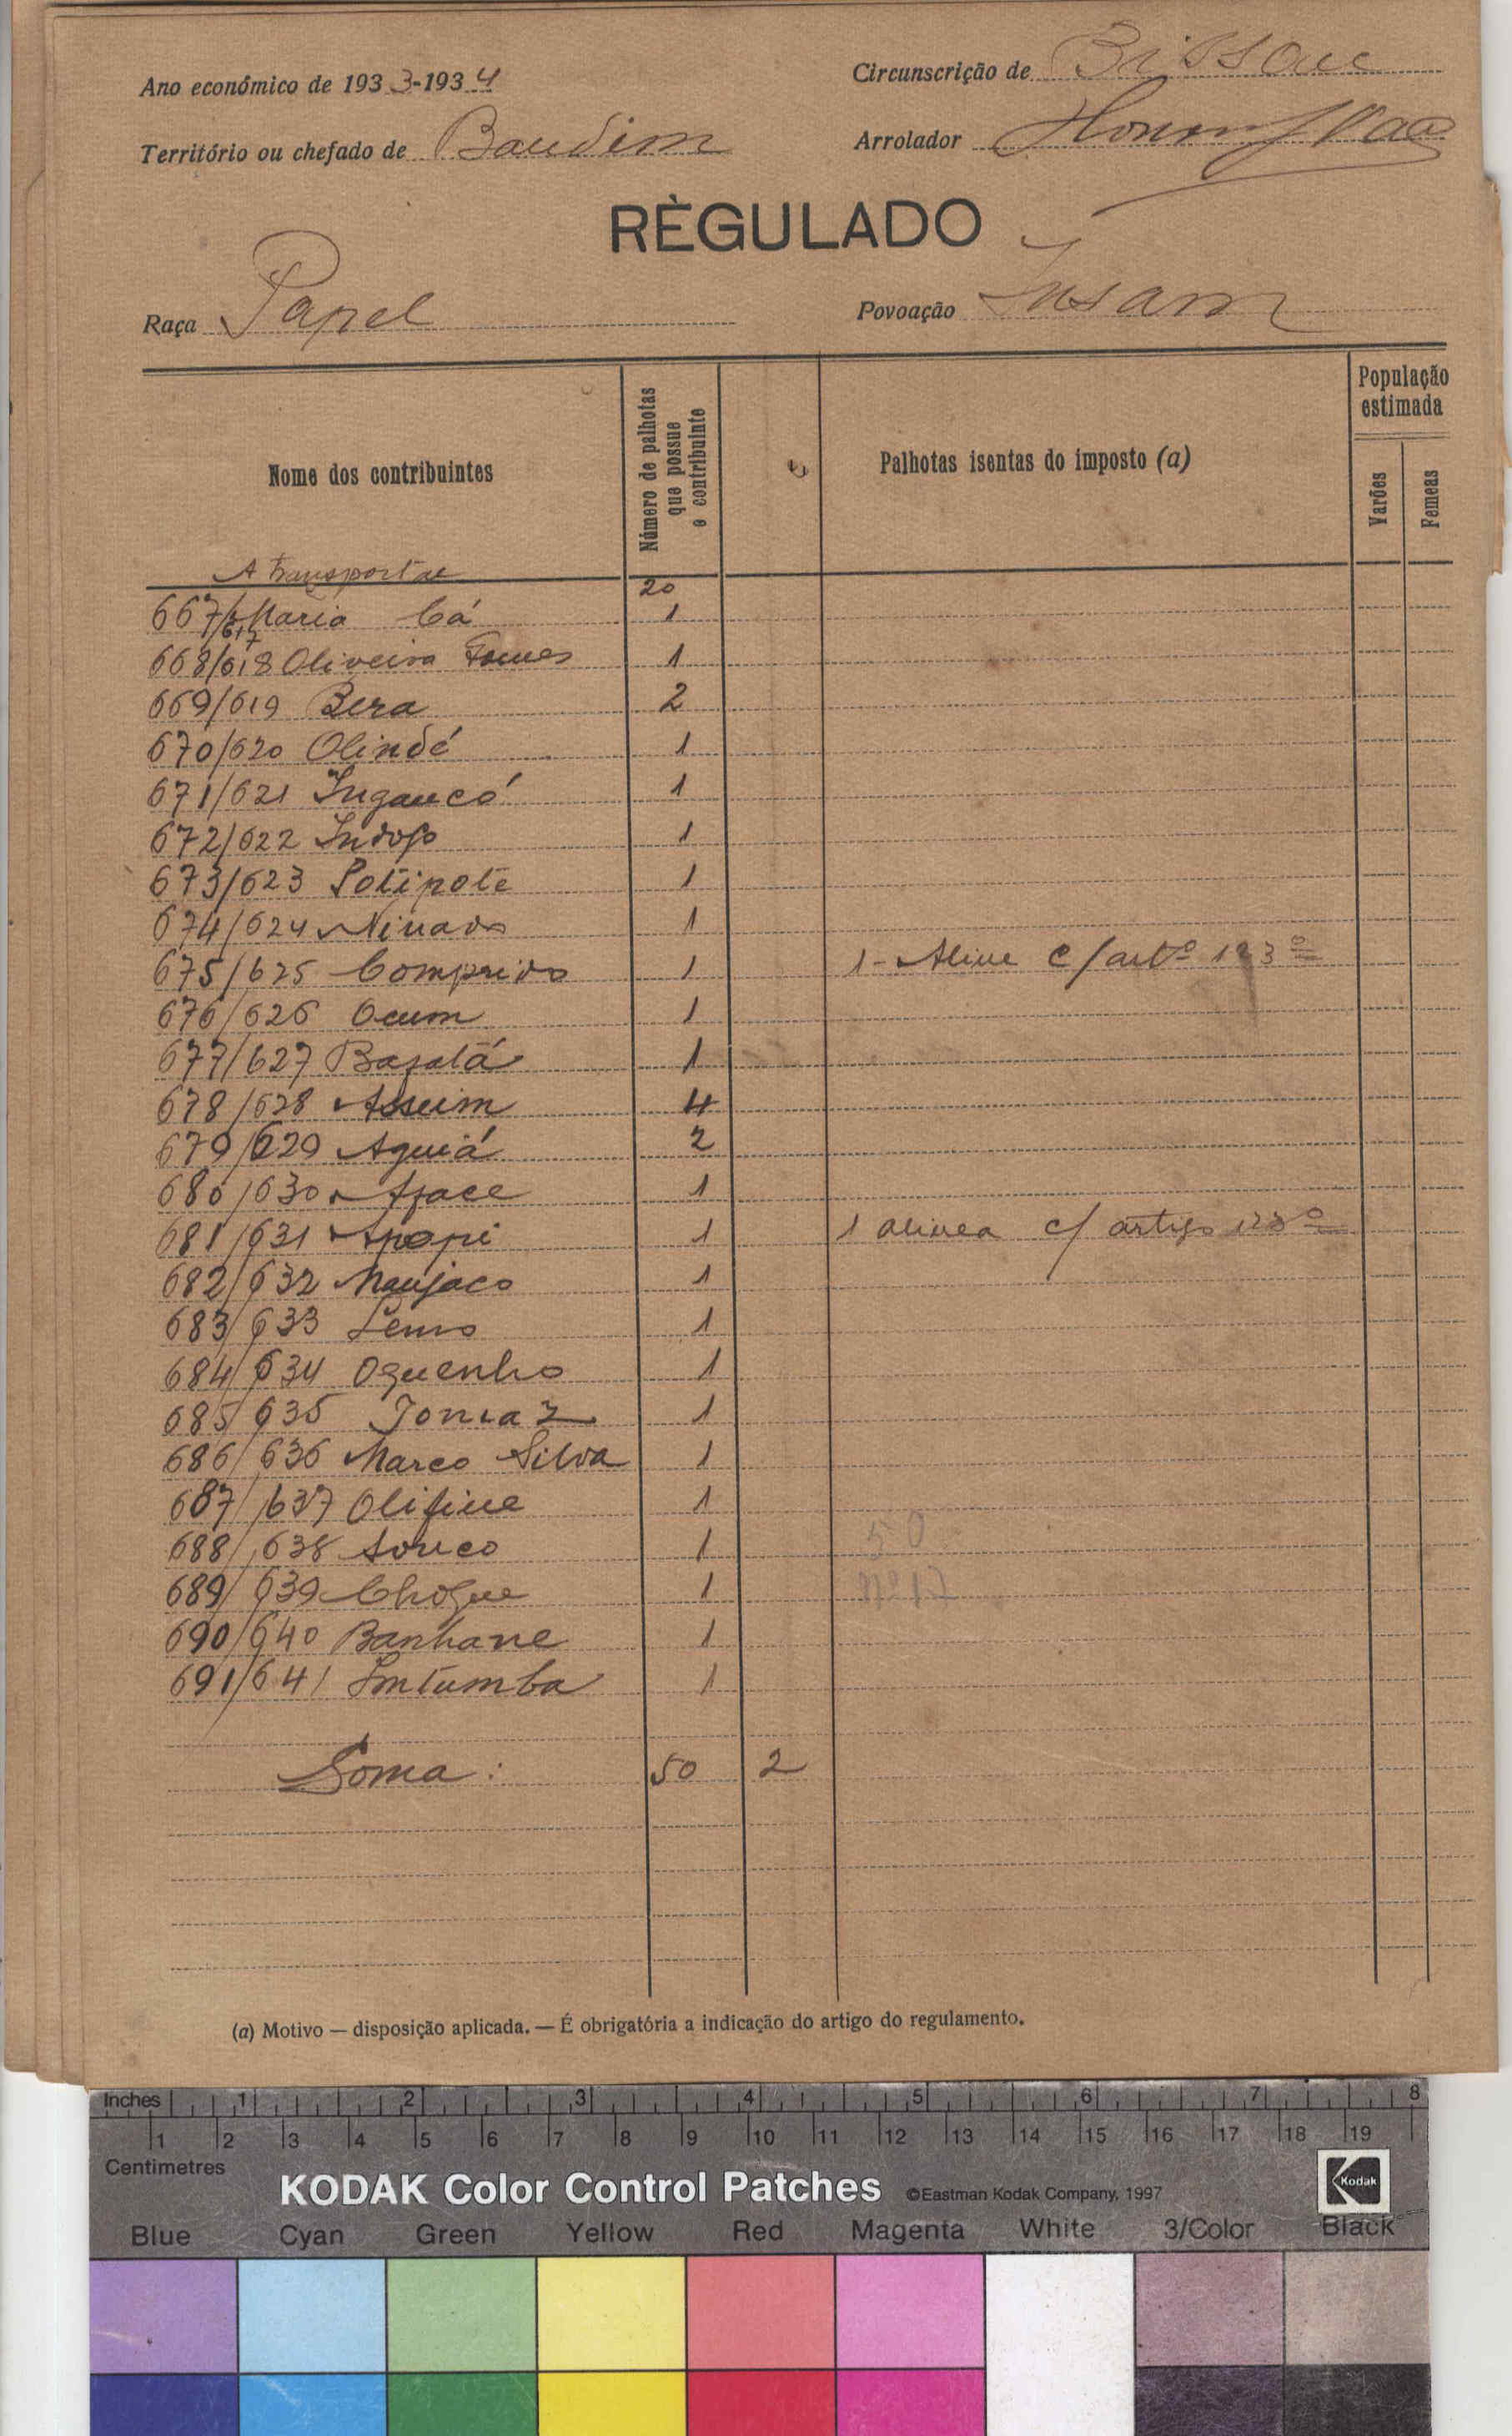 Ano económico de 1933-1934
Circunscrição de Bissau
Território ou chefado de Bandim
Arrolador
RÈGULADO
Raça Papel
Povoação Insam
Nome dos contribuintes
Número de palhotas que possue o contribuinte
Palhotas isentas do imposto (a)
População estimada
Varões
Femeas
A transportar 20
667/617 Maria Cá 1
668/618 Oliveira Gomes 1
669/619 Bera 2
670/620 Olindé 1
671/621 Ingancó 1
672/622 Indogo 1
673/623 Potipote 1
674/624 Ninado 1
675/625 Comprido 1 1- c/artº 123º
676/626 Ocum 1
677/627 1
678/628 Asseim 4
679/629 Aguiá 2
680/630 1
681/631 Apopi 1 1 alinea c/ artigo 123º
682/632 Manjaco 1
683/633 1
684/634 Oguenho 1
685/635 Tomaz 1
686/636 Marco Silva 1
687/637 1
688/638 1
689/639 Chogue 1
690/640 Banhane 1
691/641 Intumba 1
50
Soma: 50 2
(a) Motivo — disposição aplicada. — É obrigatória a indicação do artigo do regulamento.
Inches 1 2 3 4 5 6 7 8
1 2 3 4 5 6 7 8 9 10 11 12 13 14 15 16 17 18 19
Centimetres
KODAK Color Control Patches ©Eastman Kodak Company, 1997 Kodak
Blue Cyan Green Yellow Red Magenta White 3/Color Black